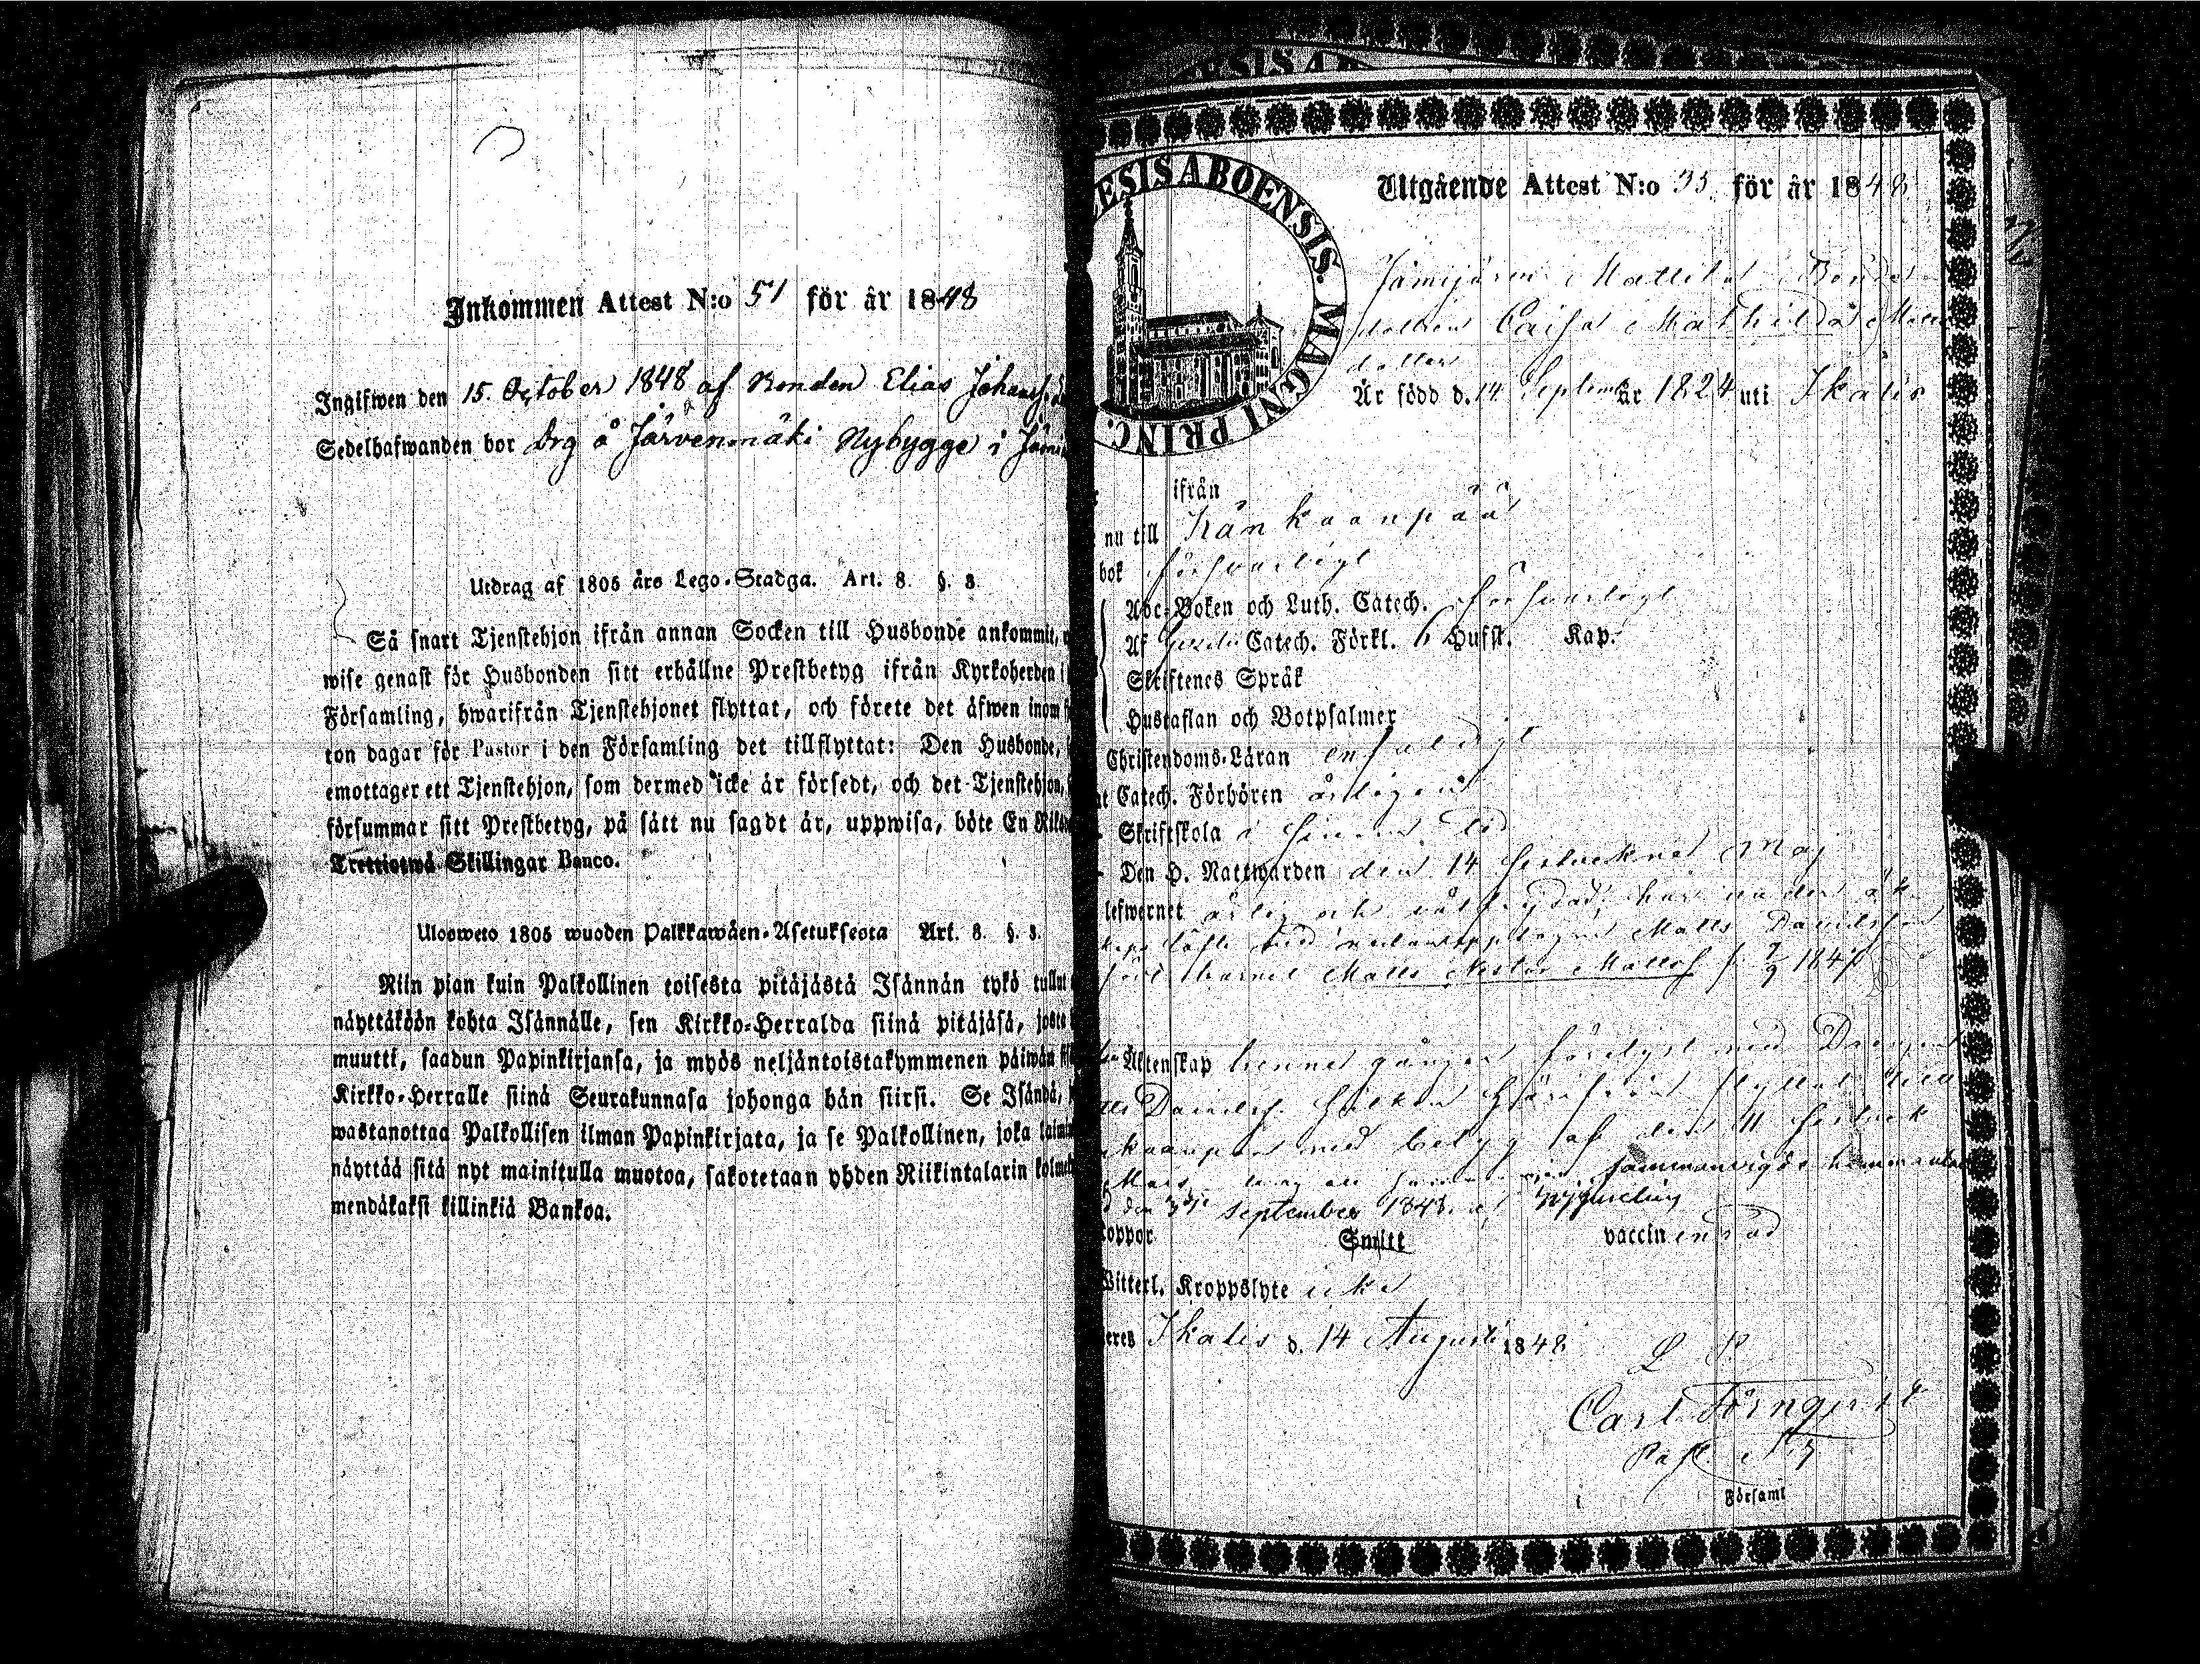 Inkommen Attest N:o 51 för år 1848
Ingifwen den 15. October 1848 af Bonden Elias
Sedelhafwanden bor Drg å Järvenmäki Nybygge i
Utdrag af 1805 års Lego-Stadga. Art. 8. §. 3.
Så snart Tjenstehjon ifrån annan Socken till Husbonde ankommit,
wise genast för Husbonden sitt erhållne Prestbetyg ifrån Kyrkoherden i
Församling, hwarifrån Tjenstehjonet flyttat, och förete det äfwen inom
ton dagar för Pastor i den Församling det tillflyttat: Den Husbonde,
emottager ett Tjenstehjon, som dermed icke är försedt, och det Tjenstehjon,
försummar sitt Prestbetyg, på sätt nu sagdt är, uppwisa, böte En
Trettiotwå Skillingar Banco.
Ulosweto 1805 wuoden Palkkawäen-Asetuksesta Art. 8. §. 3.
Niin pian kuin Palkollinen toisesta pitäjästä Isännän tykö tullut
näyttäköön kohta Isännälle, sen Kirkko-Herralda siinä pitäjäsä, josta
muutti, saadun Papinkirjansa, ja myös neljäntoistakymmenen päiwän
Kirkko-Herralle siinä Seurakunnasa johonga hän siirsi. Se Isändä,
wastanottaa Palkollisen ilman Papinkirjata, ja se Palkollinen, joka
näyttää sitä nyt mainitulla muotoa, sakotetaan yhden Riikintalarin
mendäkaksi killinkiä Bankoa.
ESIS ABOENSIS. MAGNI PRINC.
Utgående Attest N:o 35 för år 1848
Jämijärvi Mattila Bonde
dottren Caisa Mathilda
dotter
Är född d. 14 September år 1824 uti Ikalis
ifrån
nu till Kankaanpää
bok försvarligt
Abc-Boken och Luth. Catech. försvarligt
Af Catech. Förkl. 6 Hufst. Kap.
Skriftenes Språk
Hustaflan och Botpsalmer
Christendoms-Läran enfaldigt
Catech. Förhören årligen
Skriftskola i sinom tid
Den H. Nattwarden den 14 sistvekne Maj
lefwernet ärlig och
Matts Davidsson
barnet Matts Nestor Mattss. f. 7/9 1847
Äktenskap henne gånger förelyst med Drengen
Davidss. flyttat till
med betyg af den 11 sistvek
Mars sammanvigde
den September 1848.
koppor Smitt vaccinerad
Witterl. Kroppslyte icke
Ikalis d. 14 Augusti 1848
L. S.
Carl Törnqvist
Past.
Församl